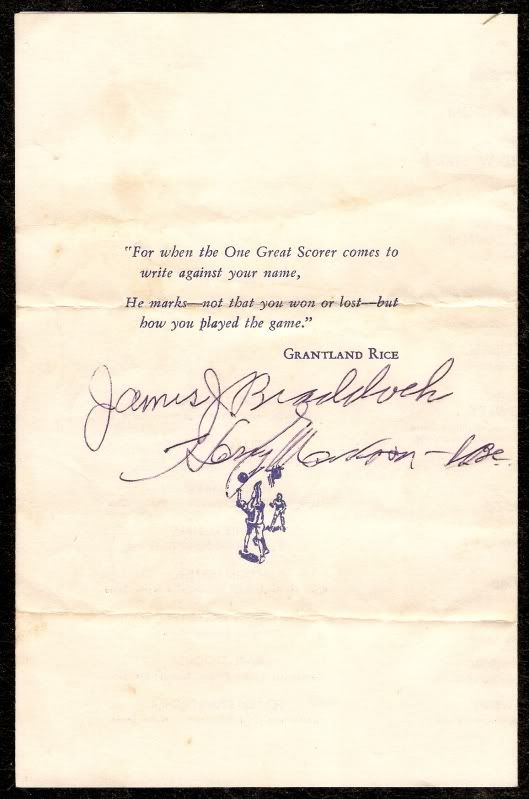 "For when the One Great Scorer comes to
write against your name,
He marks—not that you won or lost—but
how you played the game."
GRANTLAND RICE
James J Braddock
Harry